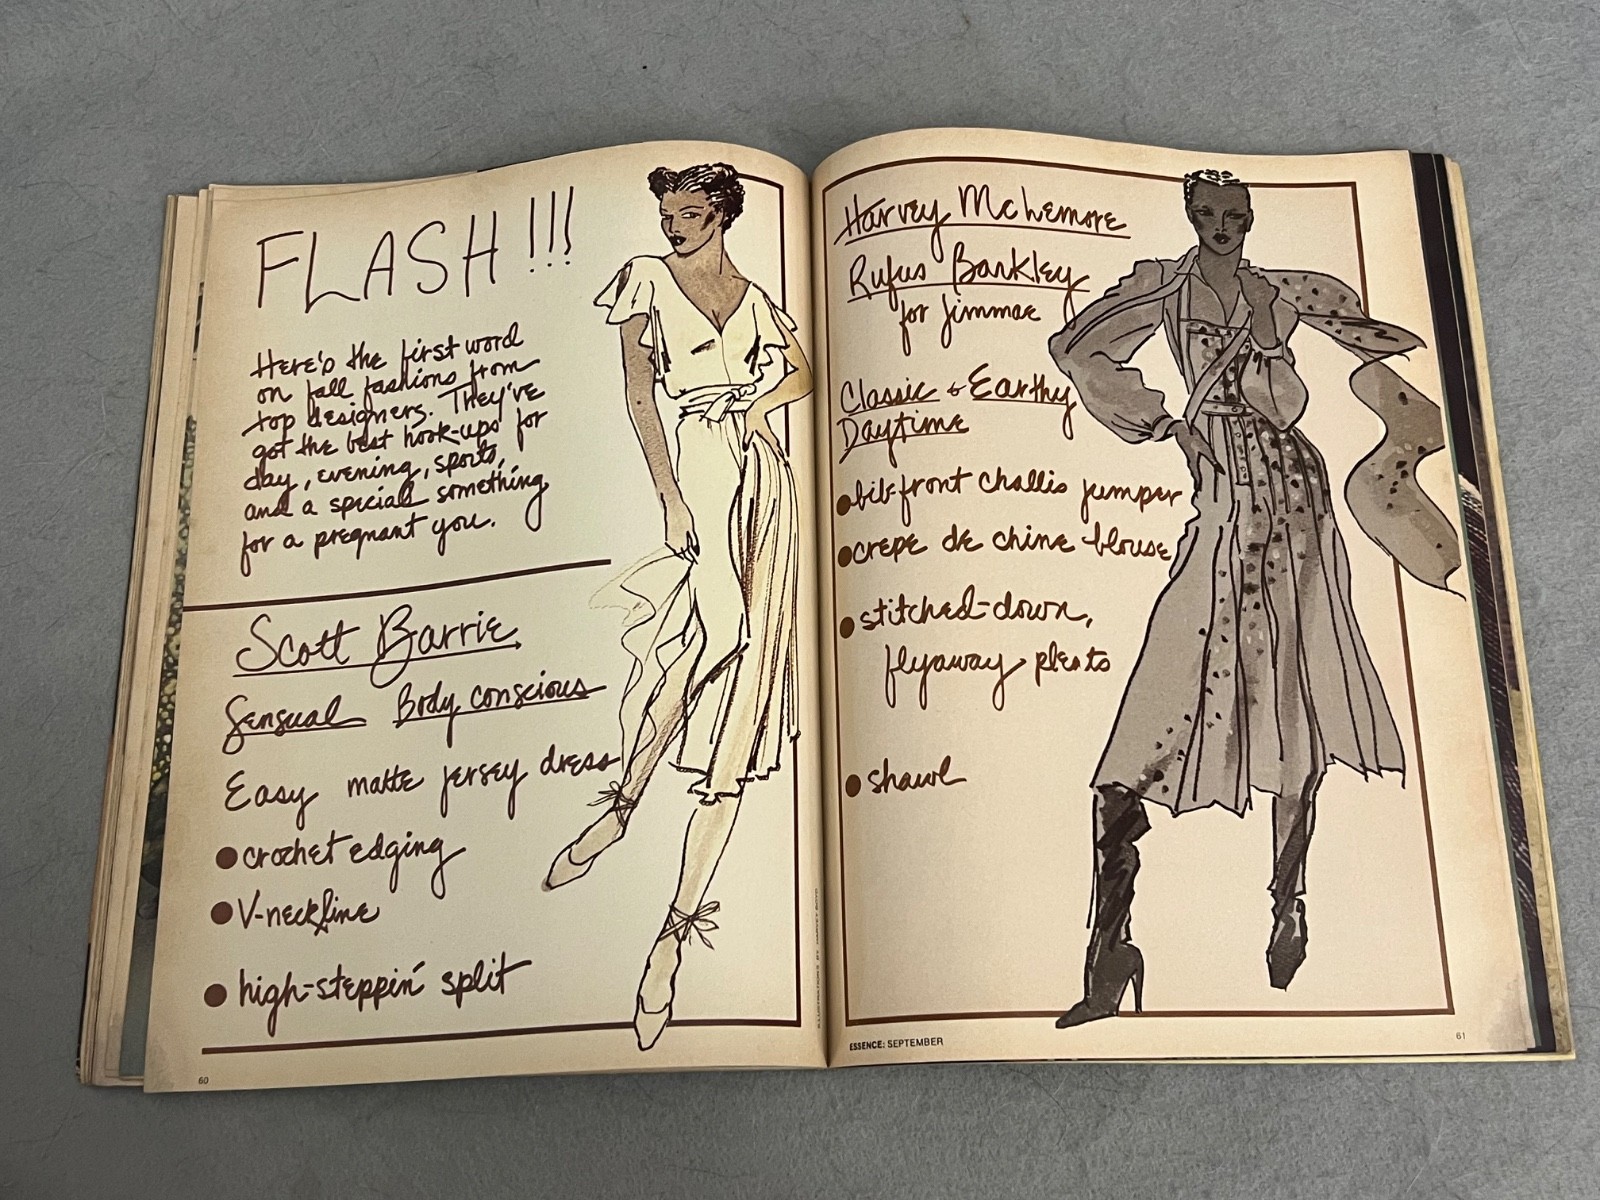 FLASH!!!
Here's the first word
on fall fashions from
top designers. They've
got the best hook-ups for
day, evening, sports,
and a special something
for a pregnant you.
Scott Barrie
Sensual Body conscious
Easy matte jersey dress
• crochet edging
• V-neckline
• high-steppin' split
60
ILLUSTRATIONS BY HARVEY BOYD
Harvey McLemore
Rufus Barkley
for Jimmae
Classic & Earthy
Daytime
• bib-front challis jumper
• crepe de chine blouse
• stitched-down,
flyaway pleats
• shawl
ESSENCE: SEPTEMBER
61